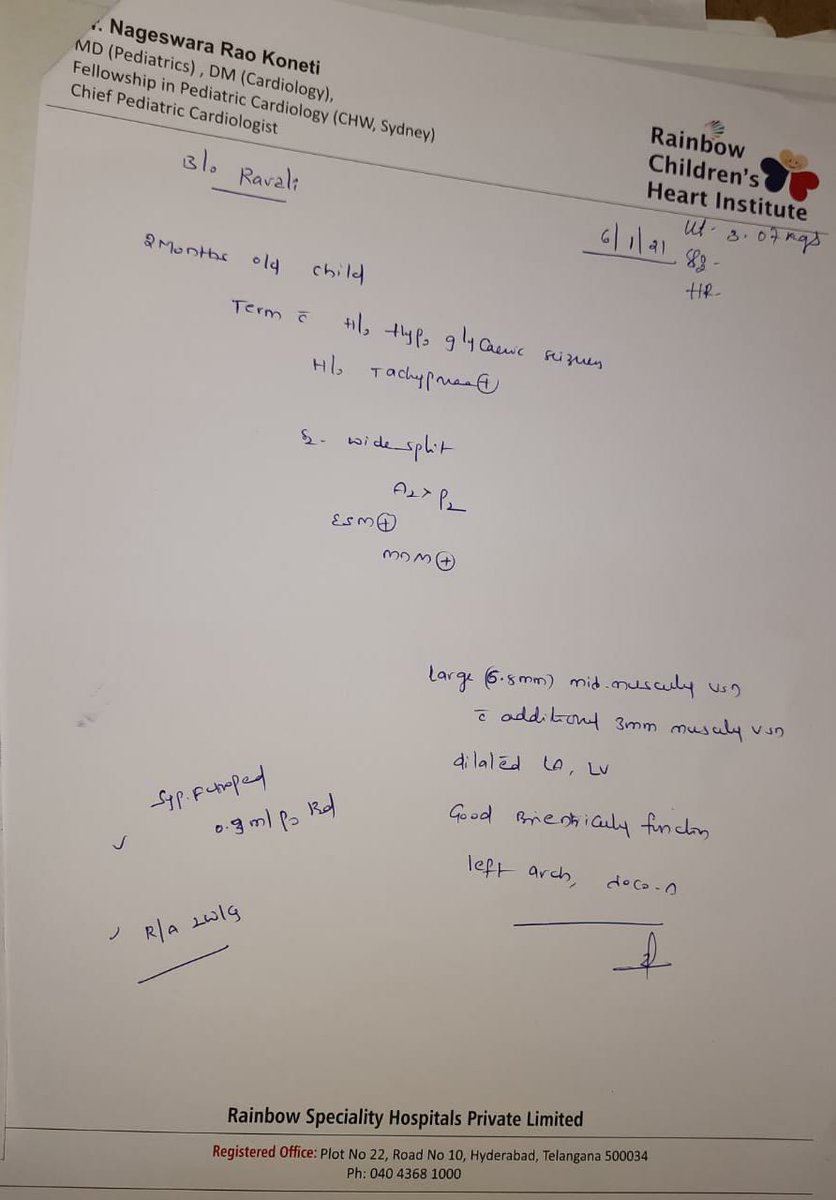 . Nageswara Rao Koneti
MD (Pediatrics) , DM (Cardiology),
Fellowship in Pediatric Cardiology (CHW, Sydney)
Chief Pediatric Cardiologist
Rainbow
Children's
Heart Institute
B/o Ravali
6/1/21 Wt- 3.07 kgs
HR-
2 Months old child
Term c̄ H/o Hypoglycaemic seizures
H/o Tachypnea ⊕
S2 - wide split
A2 > P2
ESM ⊕
MDM ⊕
large (5.8mm) mid muscular VSD
c̄ additional 3mm muscular VSD
dilated LA, LV
Good Biventricular function
left arch,
Syp.
ml po Bd
R/A
Rainbow Speciality Hospitals Private Limited
Registered Office: Plot No 22, Road No 10, Hyderabad, Telangana 500034
Ph: 040 4368 1000